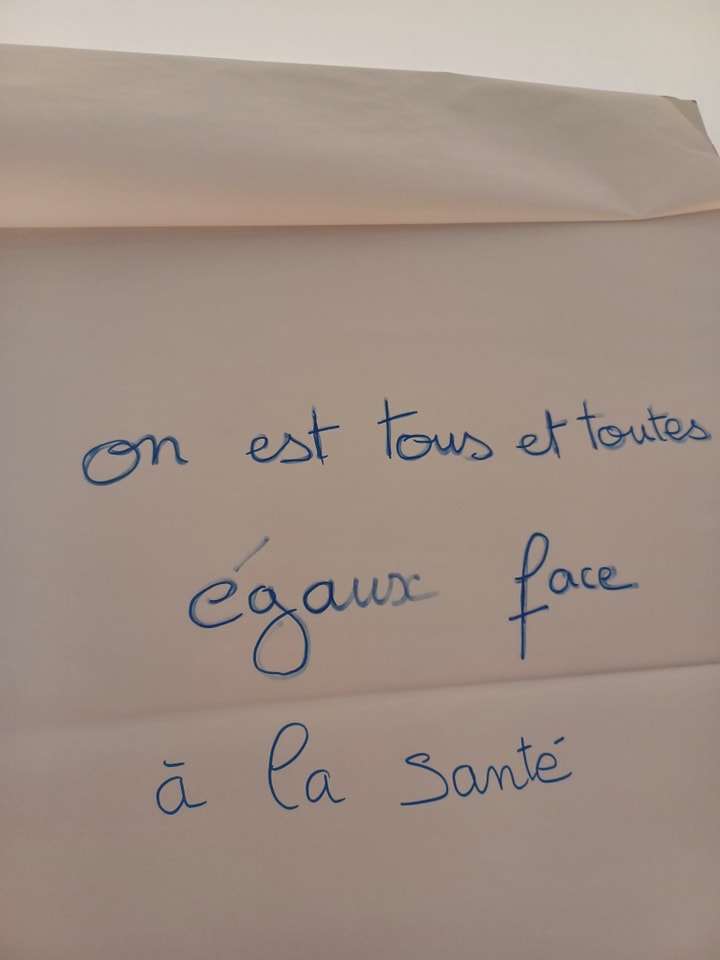 on est tous et toutes
égaux face
à la santé